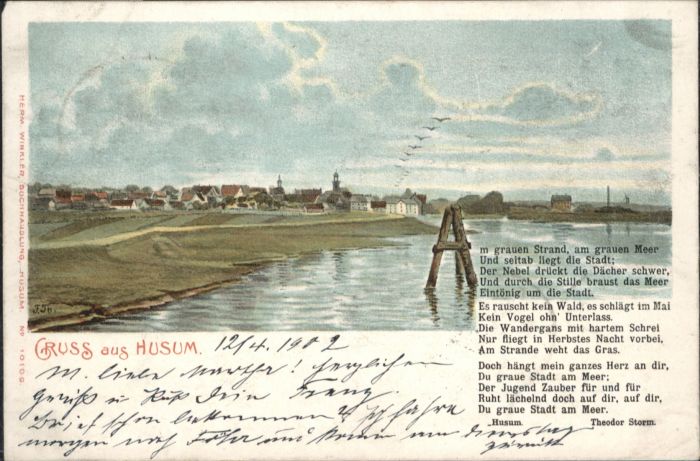 HERM. WINKLER, BUCHHANDLUNG, HUSUM. No
m grauen Strand, am grauen Meer
Und seitab liegt die Stadt;
Der Nebel drückt die Dächer schwer,
Und durch die Stille braust das Meer
Eintönig um die Stadt.
Es rauscht kein Wald, es schlägt im Mai
Kein Vogel ohn' Unterlass.
Die Wandergans mit hartem Schrei
Nur fliegt in Herbstes Nacht vorbei,
Am Strande weht das Gras.
Doch hängt mein ganzes Herz an dir,
Du graue Stadt am Meer;
Der Jugend Zauber für und für
Ruht lächelnd doch auf dir, auf dir,
Du graue Stadt am Meer.
Husum. Theodor Storm.
GRUSS aus HUSUM. 12/4. 1902
M. liebe Martha! Herzlichen
Gruß u. Kuß Dein Franz
schon bekommen
morgen nach Föhr und komme am Dienstag
zurück